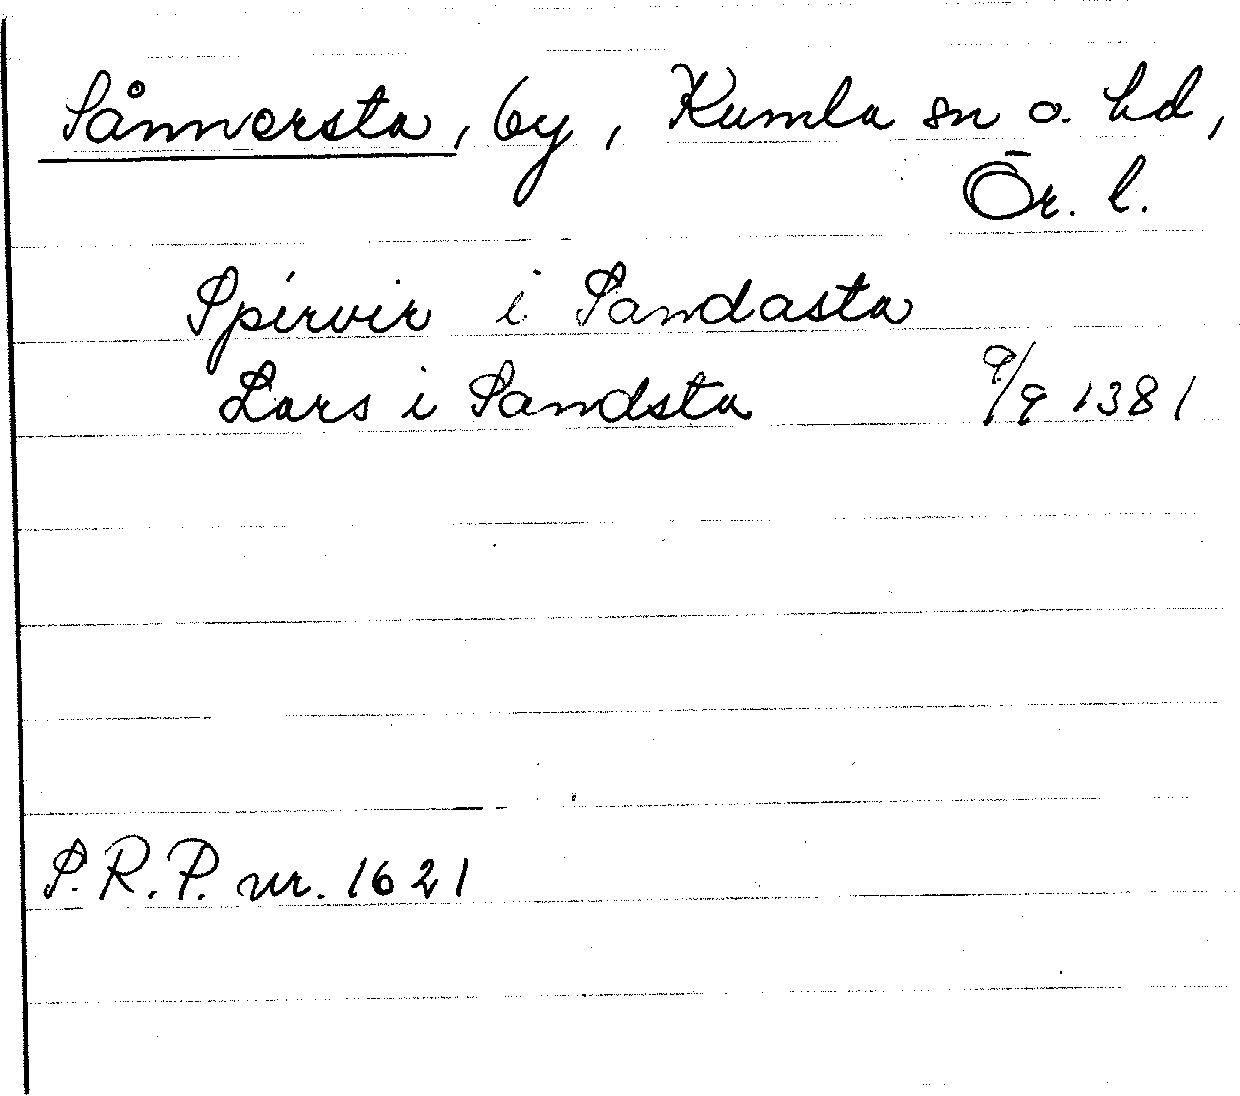 Sånnersta, by, Kumla sn o. hd,
Ör. l.
Spirvir i Sandasta
Lars i Sandsta 9/9 1381
S.R.P. nr. 1621